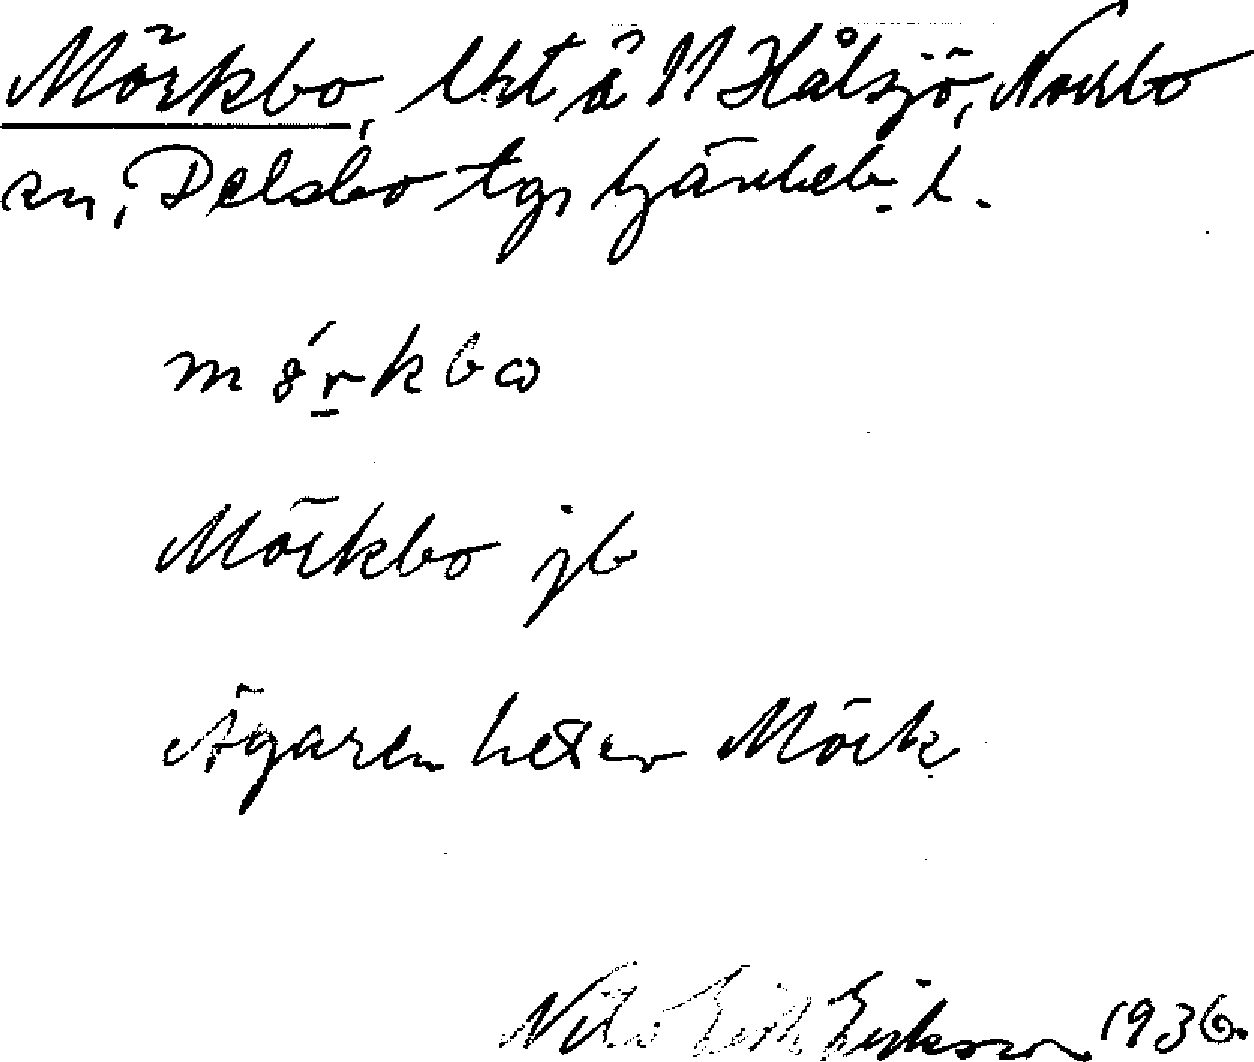 Mörkbo, lht å N Hålsjö, Norrbo
sn, Delsbo tgs Gävleb. l.
mörkbω
Mörkbo jb
Ägaren heter Mörk
Nils Erik Erikson 1936.